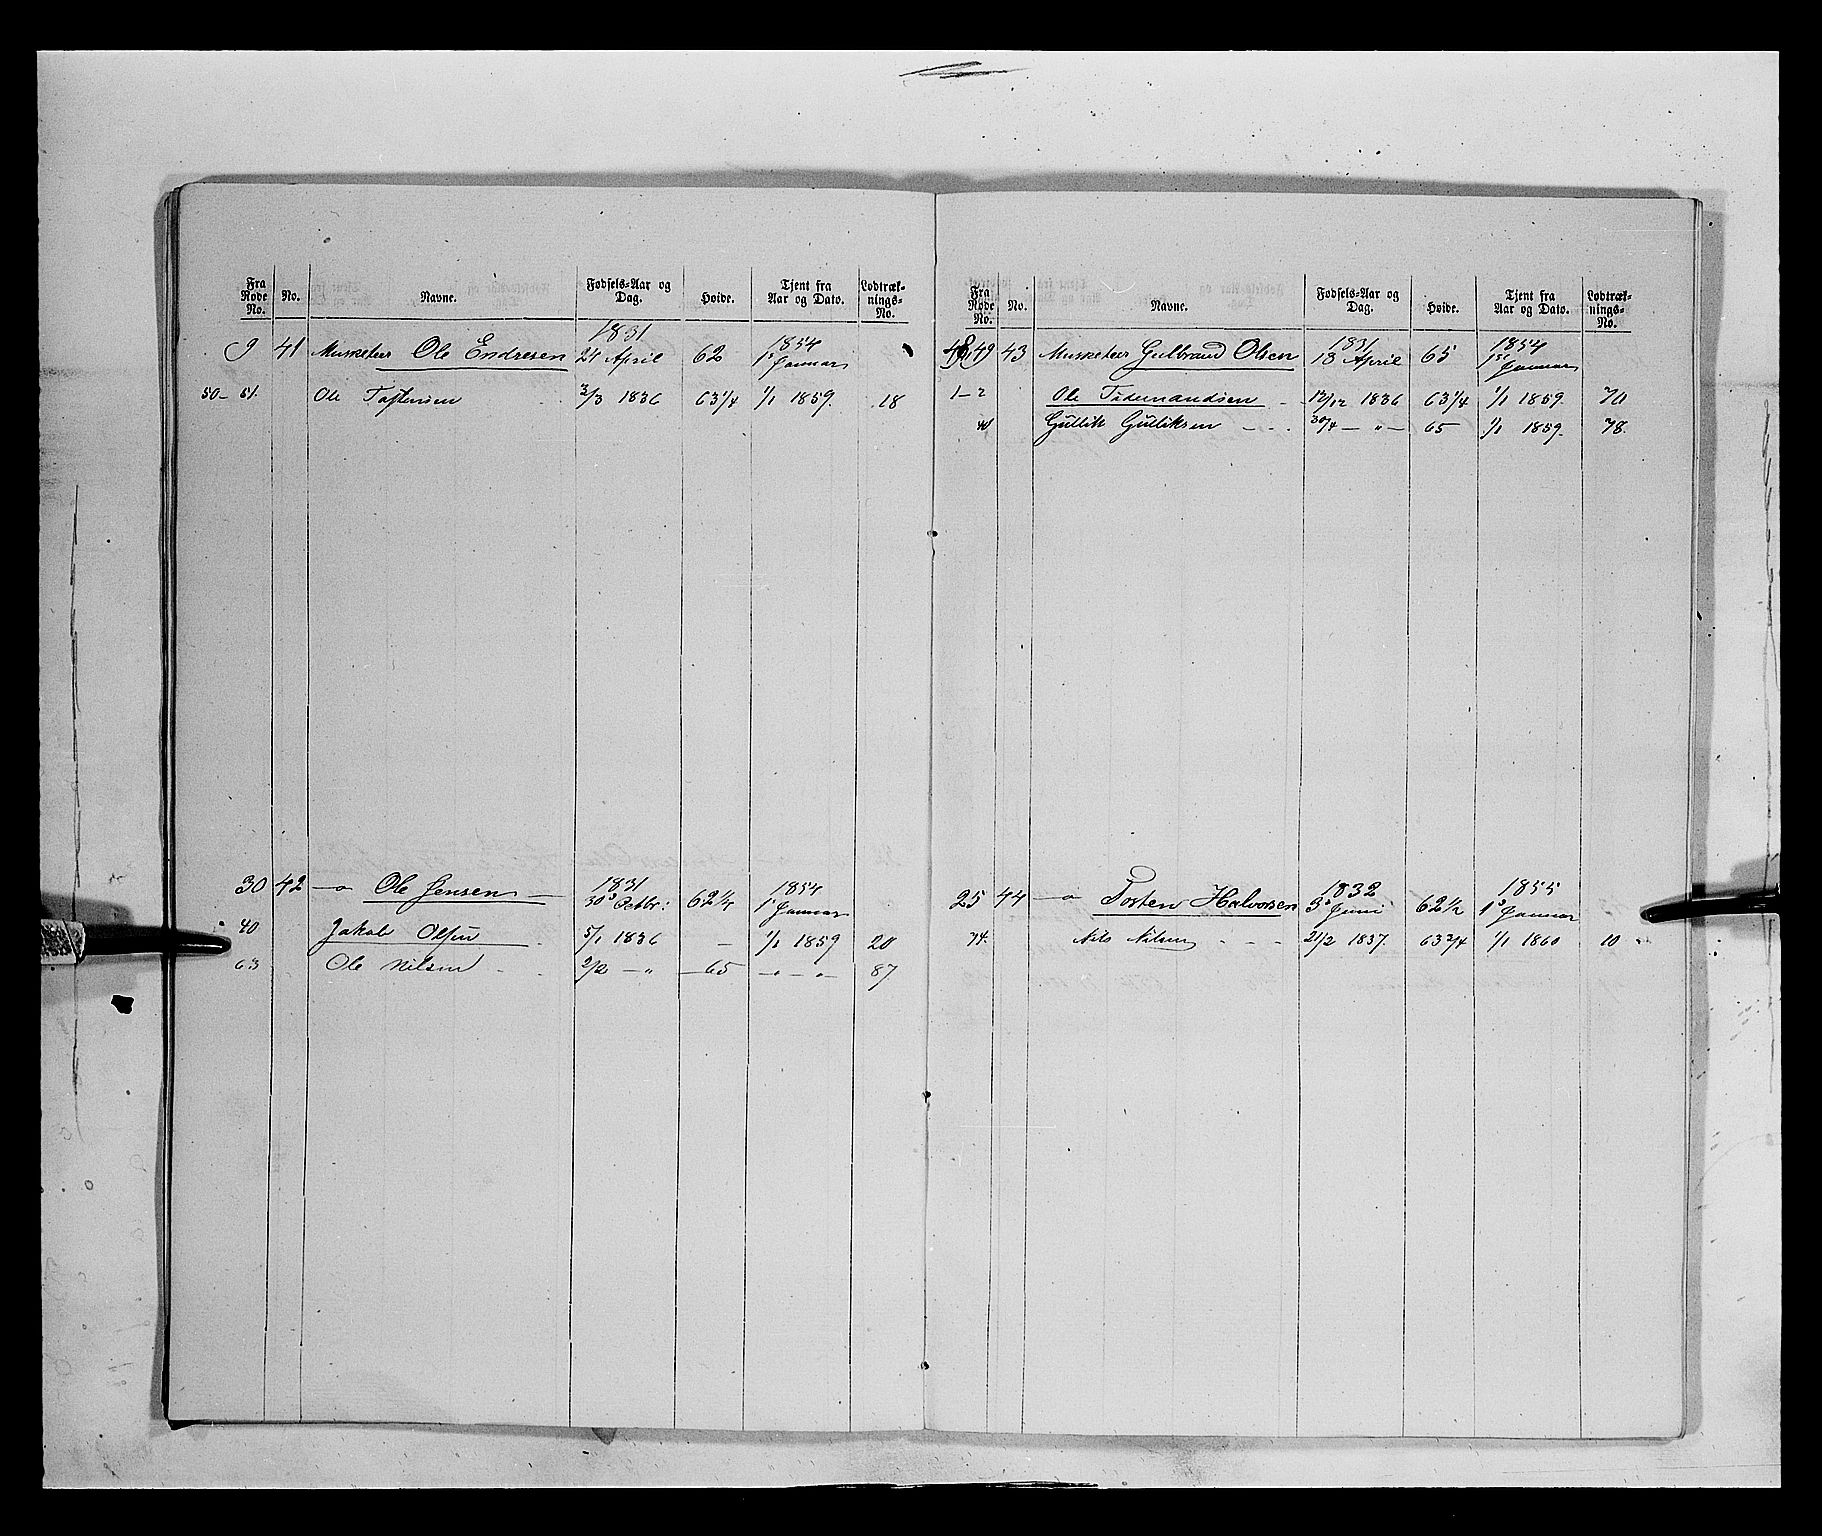 Fra Rode No. No. Navne. Fødsels-Aar og Dag. Høide. Tjent fra Aar og Dato. Lodtræk-nings-No.
9 41 Musketeer Ole Endresen 1831 24 April 62 1854 1ste Januar
50- 51. Ole Tostensen 2/3 1836 63 1/4 1/1 1859. 18
30 42 —"— Ole Jensen 1831 30 Octbr: 62 1/4 1854 1 Januar
40 Jakob Olsen 5/1 1836 — 1/1 1859 20
63 Ole Nilsen 2/2 — " 65 —"—"— 87
Fra Rode No. No. Navne. Fødsels-Aar og Dag. Høide. Tjent fra Aar og Dato. Lodtræk-nings-No.
49 43 Musketeer Gulbrand Olsen 1831 13 April 65 1854 1ste Januar
1-2 Ole Tidemandsen 12/12 1836 63 1/4 1/1 1859. 70
40 Gullik Gulliksen 30/4 — " — 65 1/1 1859. 78.
25 44 —"— Tosten Halvorsen 1832 3 Juni 62 1/2 1855 1 Januar
74. Nils Nilsen 21/2 1837. 63 3/4 1/1 1860 10